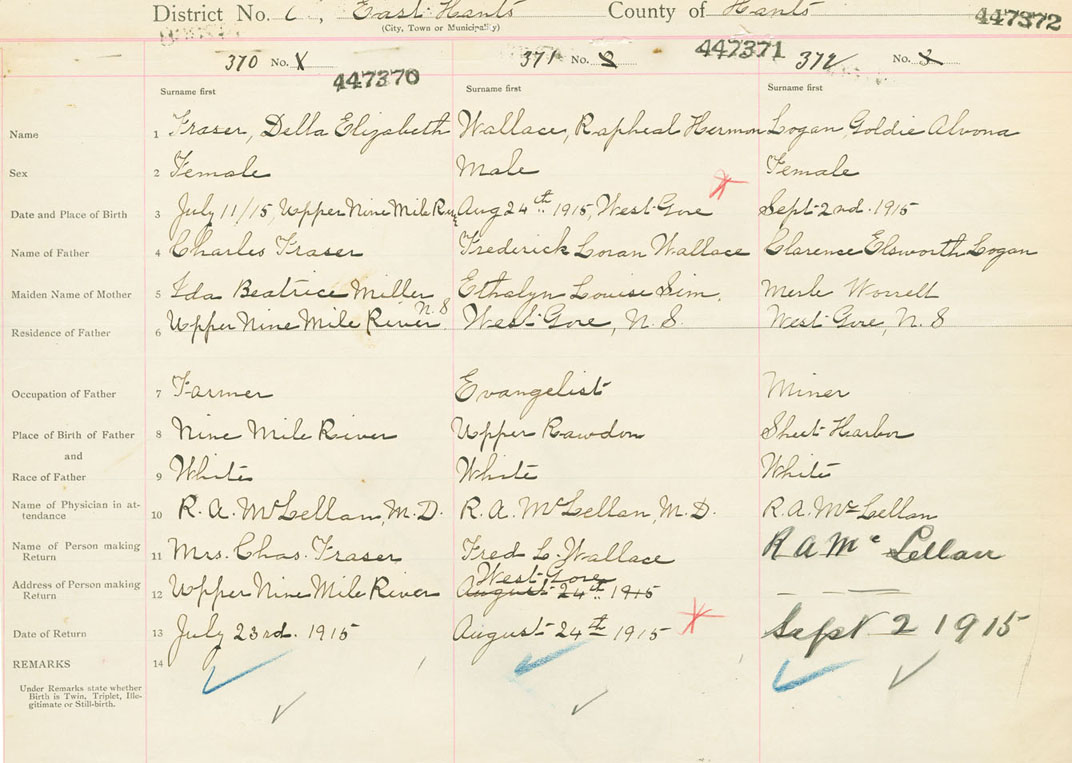 District No. 1, East Hants County of Hants 447372
(City, Town or Municipality)
370 No. X 447370 371 No. 2 447371 372 No. 3
Surname first Surname first Surname first
Name 1 Fraser, Della Elizabeth Wallace, Rapheal Hermon Logan Goldie Alvona
Sex 2 Female Male Female
Date and Place of Birth 3 July 11/15, Upper Nine Mile River Aug 24th 1915, West Gore Sept 2nd. 1915
Name of Father 4 Charles Fraser Frederick Loran Wallace Clarence Elsworth Logan
Maiden Name of Mother 5 Ida Beatrice Miller Ethalyn Louise Sim. Merle Worrell
Residence of Father 6 Upper Nine Mile River N.S West Gore, N.S. West Gore, N.S
Occupation of Father 7 Farmer Evangelist Miner
Place of Birth of Father 8 Nine Mile River Upper Rawdon Sheet Harbor
and
Race of Father 9 White White White
Name of Physician in at-
tendance 10 R. A. McLellan, M.D. R. A. McLellan, M.D. R. A. McLellan
Name of Person making
Return 11 Mrs. Chas. Fraser Fred L. Wallace R A Mc Lellan
Address of Person making
Return 12 Upper Nine Mile River West Gore August 24th 1915
Date of Return 13 July 23rd. 1915 August 24th 1915 Sept 2 1915
REMARKS 14
Under Remarks state whether
Birth is Twin, Triplet, Ille-
gitimate or Still-birth.